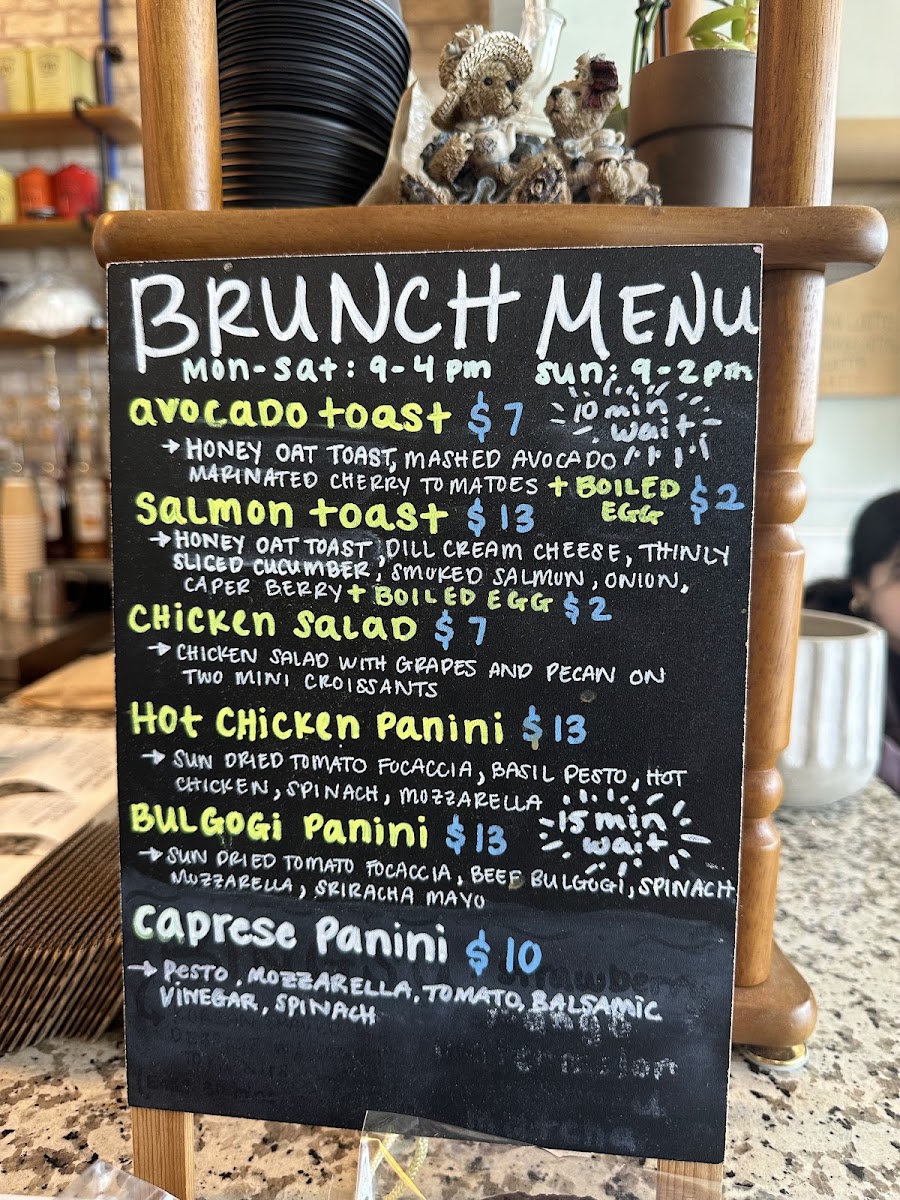 BRUNCH MENU
Mon-Sat: 9-4pm Sun: 9-2pm
avocado toast $7 10 min
wait
→ HONEY OAT TOAST, MASHED AVOCADO
MARINATED CHERRY TOMATOES + BOILED EGG $2
salmon toast $13
→ HONEY OAT TOAST, DILL CREAM CHEESE, THINLY
SLICED CUCUMBER, SMOKED SALMON, ONION,
CAPER BERRY + BOILED EGG $2
CHICKEN SALAD $7
→ CHICKEN SALAD WITH GRAPES AND PECAN ON
TWO MINI CROISSANTS
HOT CHICKEN PANINI $13
→ SUN DRIED TOMATO FOCACCIA, BASIL PESTO, HOT
CHICKEN, SPINACH, MOZZARELLA
BULGOGI PANINI $13 15 min
wait
→ SUN DRIED TOMATO FOCACCIA, BEEF BULGOGI, SPINACH
MOZZARELLA, SRIRACHA MAYO
caprese panini $10
→ PESTO, MOZZARELLA, TOMATO, BALSAMIC
VINEGAR, SPINACH